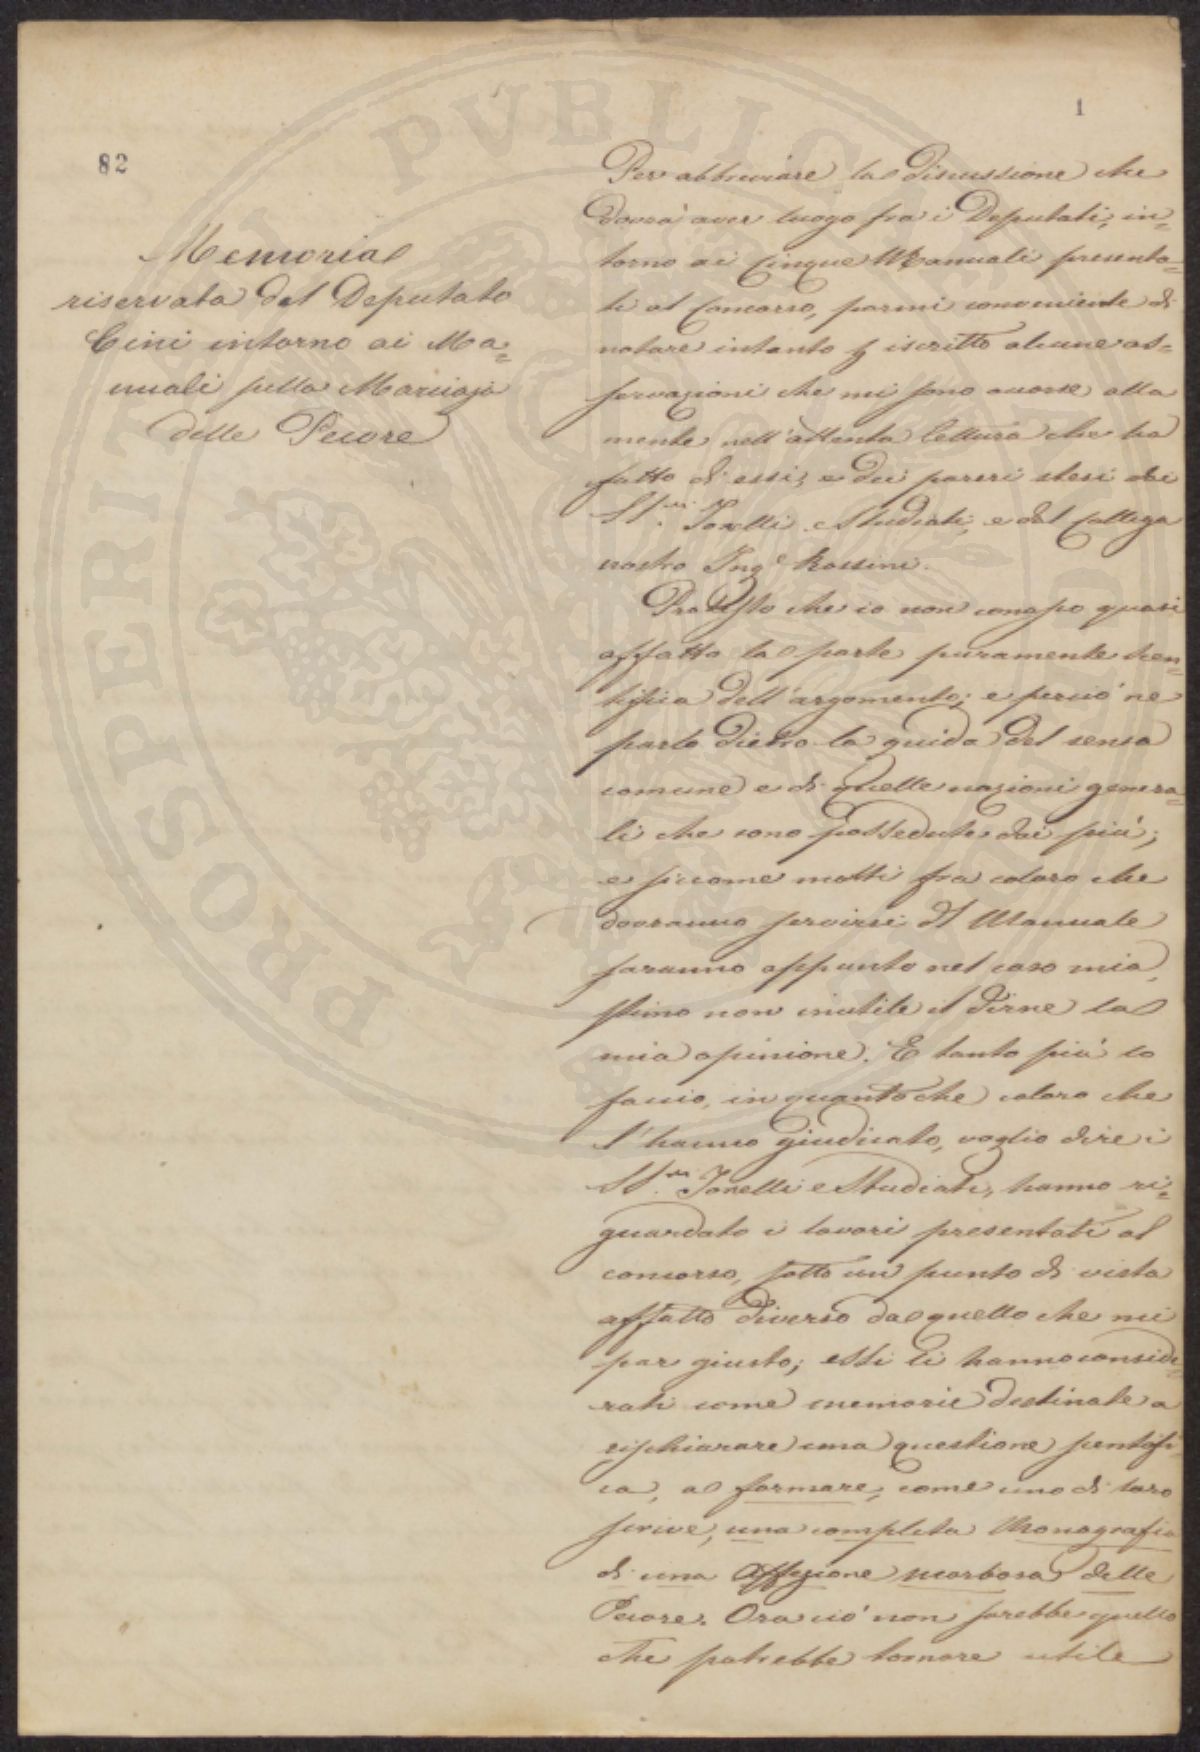 1
82
Memoria
riservata del Deputato
Cini intorno ai Ma=
nuali sulla Marciaja
delle Pecore
Per abbreviare la discussione che
dovrà aver luogo fra i Deputati, in=
torno ai Cinque Manuali presenta=
ti al Concorso, parmi conveniente di
notare intanto p iscritto alcune os=
servazioni che mi sono occorse alla
mente nell'attenta lettura che ho
fatto di essi, e dei pareri stesi dai
SS.ri Tonelli e Studiati, e dal Collega
nostro Ing.e Rossini.
Protesto che io non conosco quasi
affatto la parte puramente scien=
tifica dell'argomento; e perciò ne
parlo dietro la guida del senso
comune e di quelle nozioni genera=
li che sono possedute dai più;
e siccome molti fra coloro che
dovranno servirsi del Manuale
saranno appunto nel caso mio,
stimo non inutile il dirne la
mia opinione. E tanto più lo
faccio, in quanto che coloro che
l'hanno giudicato, voglio dire i
SS.ri Tonelli e Studiati, hanno ri=
guardato i lavori presentati al
concorso, sotto un punto di vista
affatto diverso da quello che mi
par giusto; essi li hanno conside=
rati come memorie destinate a
rischiarare una questione scientifi=
ca, a formare, come uno di loro
scrive, una completa Monografia
di una Affezione morbosa delle
Pecore. Ora ciò non sarebbe quello
che potrebbe tornare utile
PROSPERITATI PVBLICAE